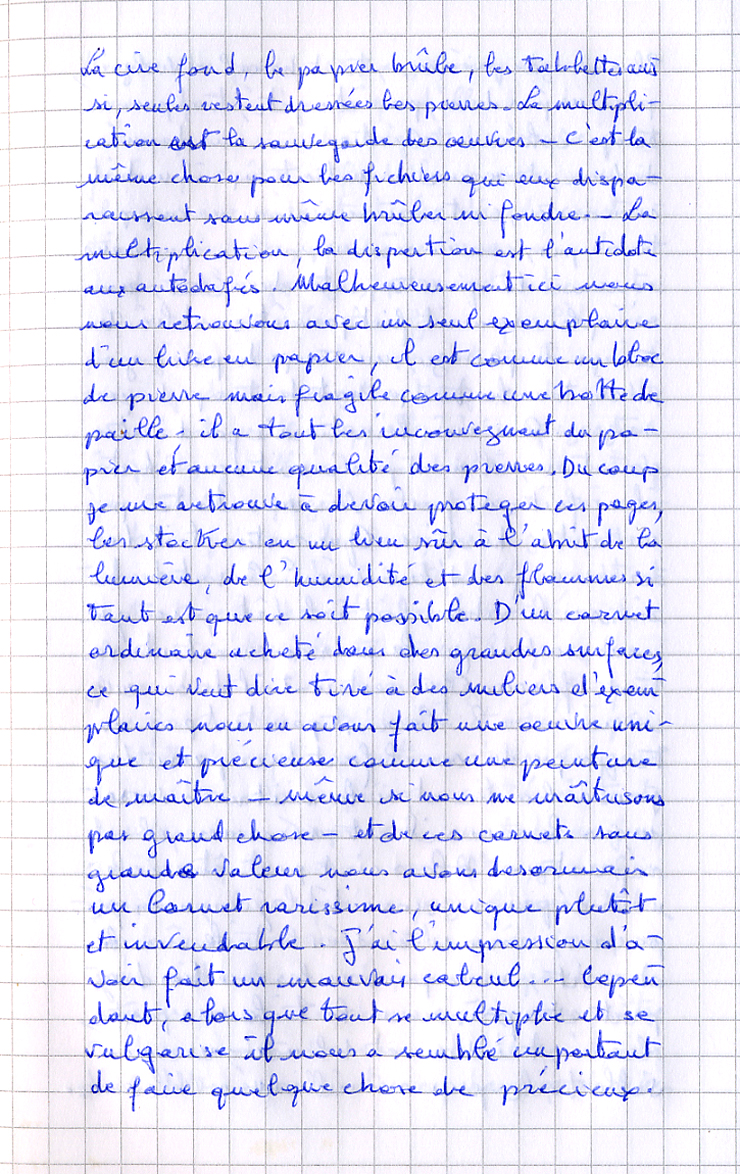 La cire fond, le papier brûle, les tablettes aus
si, seules restent dressées les pierres. La multipli-
cation est la sauvegarde des oeuvres - C'est la
même chose pour les fichiers qui eux dispa-
raissent sans même brûler ni fondre. - La
multiplication, la dispertion est l'antidote
aux autodafés. Malheureusement ici nous
nous retrouvons avec un seul exemplaire
d'un livre en papier, il est comme un bloc
de pierre mais fragile comme une botte de
paille - il a tout les inconvegnant du pa-
pier et aucune qualité des pierres. Du coup
je me retrouve à devoir proteger ces pages,
les stocker en un lieu sûr à l'abrit de la
lumière, de l'humidité et des flammes si
tant est que ce soit possible. D'un carnet
ordinaire acheté dans des grandes surfaces,
ce qui veut dire tiré à des milliers d'exem
plaires nous en avons fait une oeuvre uni-
que et précieuse comme une peinture
de maître - même si nous ne maîtrisons
pas grand chose - et de ces carnets sans
grande valeur nous avons desormais
un Carnet rarissime, unique plutôt
et invendable. J'ai l'impression d'a-
voir fait un mauvais calcul... Cepen
dant, alors que tout se multiplie et se
vulgarise il nous a semblé important
de faire quelque chose de précieux.